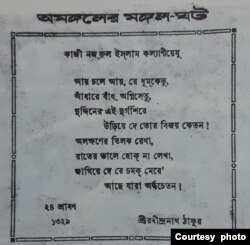 অমঙ্গলের মঙ্গল-ঘট
কাজী নজরুল ইস্‌লাম কল্যাণীয়েষু
আয় চলে আয়, রে ধূমকেতু,
আঁধারে বাঁধ্ অগ্নিসেতু,
দুর্দ্দিনের এই দুর্গশিরে
উড়িয়ে দে তোর বিজয় কেতন!
অলক্ষণের তিলক রেখা,
রাতের ভালে হোক্ না লেখা,
জাগিয়ে দে রে চমক্ মেরে'
আছে যারা অর্দ্ধচেতন!
২৪ শ্রাবণ
১৩২৯
শ্রীরবীন্দ্রনাথ ঠাকুর
Courtesy photo